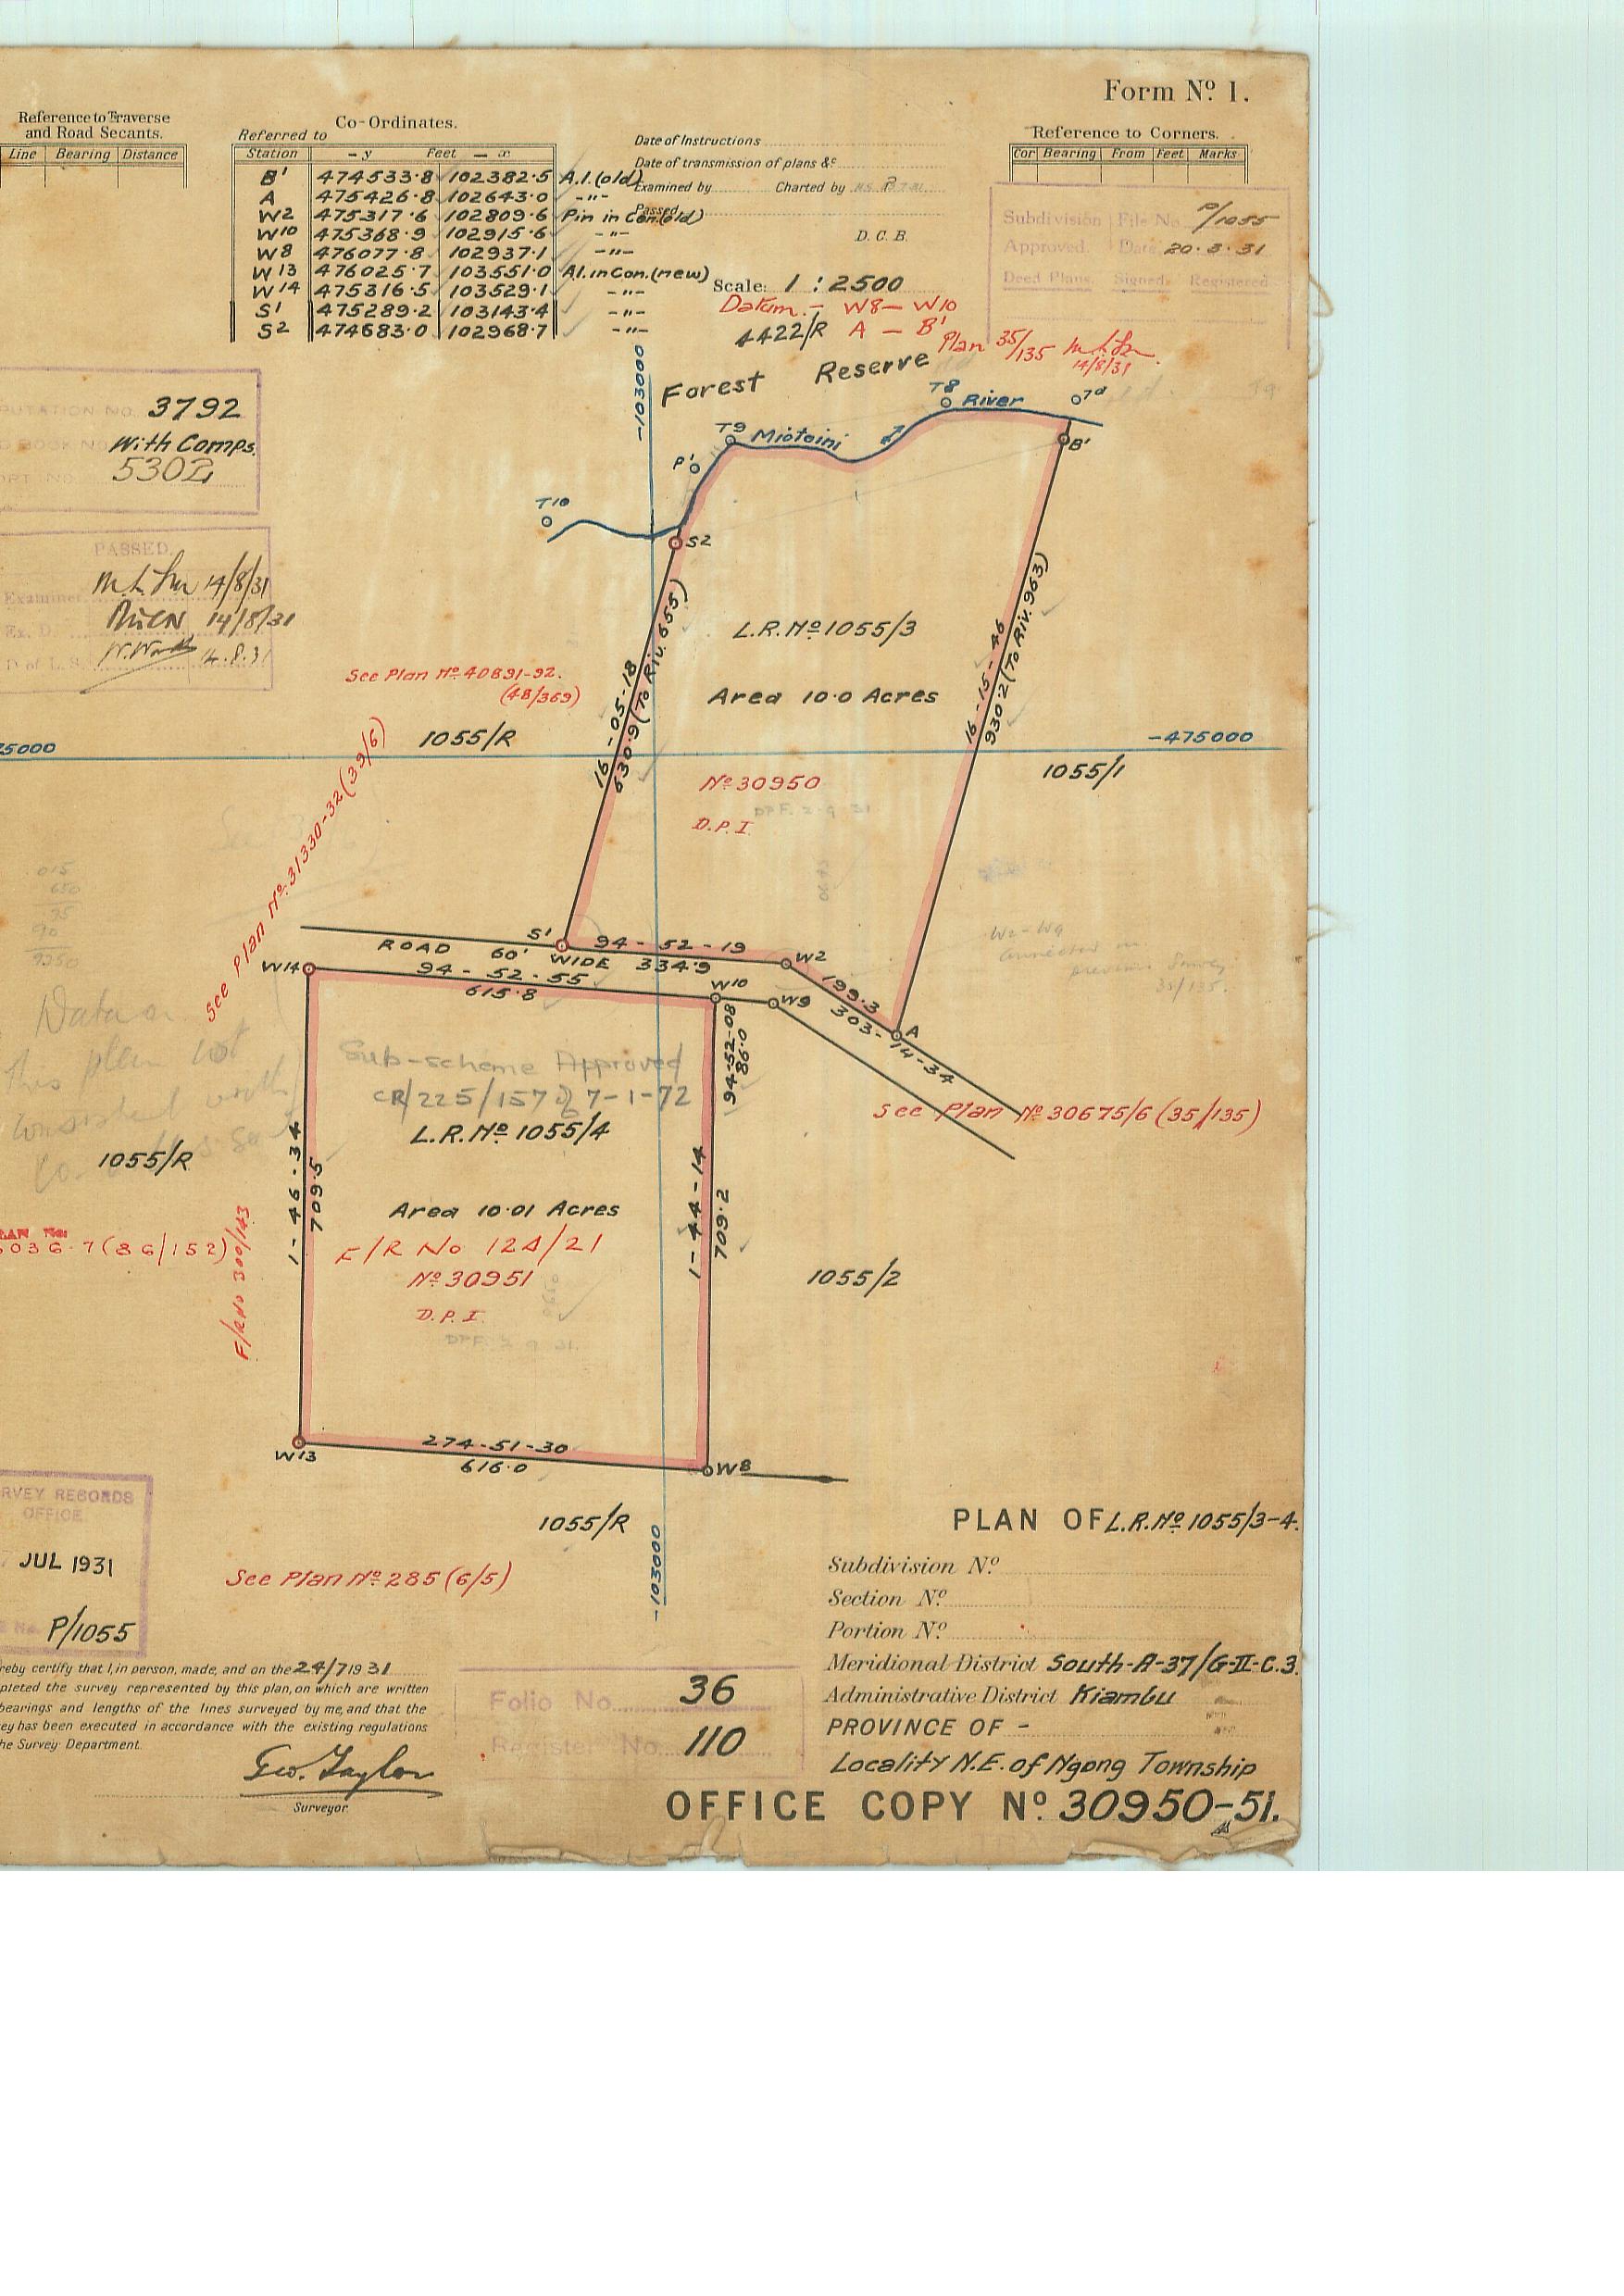 Form Nº 1.
Reference to Traverse
and Road Secants.
Line Bearing Distance
Co-Ordinates.
Referred to
Station - y Feet - x
B' 474533.8 102382.5 A.I.(old)
A 475426.8 102643.0 -"-
W2 475317.6 102809.6 Pin in Con(old)
W10 475368.9 102915.6 -"-
W8 476077.8 102937.1 -"-
W13 476025.7 103551.0 A.I.in Con.(new)
W14 475316.5 103529.1 -"-
S' 475289.2 103143.4 -"-
S2 474683.0 102968.7 -"-
Date of Instructions
Date of transmission of plans &c
Examined by Charted by
Passed
D.C.B.
Scale: 1 : 2500
Datum:- W8—W10
A — B' Plan 35/135
14/8/31
4422/R
Reference to Corners.
Cor Bearing From Feet Marks
Subdivision File No. P/1055
Approved. Date 20.3.31
Deed Plans. Signed. Registered
PUTATION NO. 3792
D BOOK NO. With Comps.
ORT NO. 5302
PASSED.
Examiner 14/8/31
Ex. D. 14/8/31
D of L.S. 14.8.31
Forest Reserve
-103000
T8 River 7d
T9 Miotoini
B'
P'
T10
S2
L.R.Nº 1055/3
Area 10.0 Acres
16-05-18
630.9 (To Riv. 655)
16-15-46
930.2 (To Riv. 963)
See Plan Nº 40891-92.
(48/369)
1055/R
75000
-475000
1055/1
Nº 30950
D.P.I
DPF. 2.9.31.
See Plan Nº 31330-32 (39/6)
W2-W9
connected on
previous Survey
35/135.
S' 94-52-19 W2
ROAD 60' WIDE 334.9
W14 94-52-55 W10 W9
615.8
199.3
303-14-34
A
94-52-08
86.0
Data on
this plan not
consistent with
Sub-scheme Approved
CR/225/157 of 7-1-72
L.R.Nº 1055/4
See Plan Nº 30675/6 (35/135)
1055/R
1-46-34
709.5
1-44-14
709.2
Area 10.01 Acres
F/R No 124/21
Nº 30951
D.P.I.
DPF. 2.9.31.
LAN No:
5036-7 (86/152)
F/R No 300/143
1055/2
274-51-30
W13 616.0 W8
1055/R
-103000
See Plan Nº 285 (6/5)
RVEY RECORDS
OFFICE.
JUL 1931
No. P/1055
PLAN OF L.R.Nº 1055/3-4.
Subdivision Nº
Section Nº
Portion Nº
Meridional District South-A-37/G-II-C.3.
Administrative District Kiambu
PROVINCE OF -
Locality N.E. of Ngong Township
OFFICE COPY Nº 30950-51.
Folio No. 36
Register No. 110
reby certify that I, in person, made, and on the 24/7 1931
pleted the survey represented by this plan, on which are written
bearings and lengths of the lines surveyed by me, and that the
ey has been executed in accordance with the existing regulations
he Survey Department.
Geo. Taylor
Surveyor.